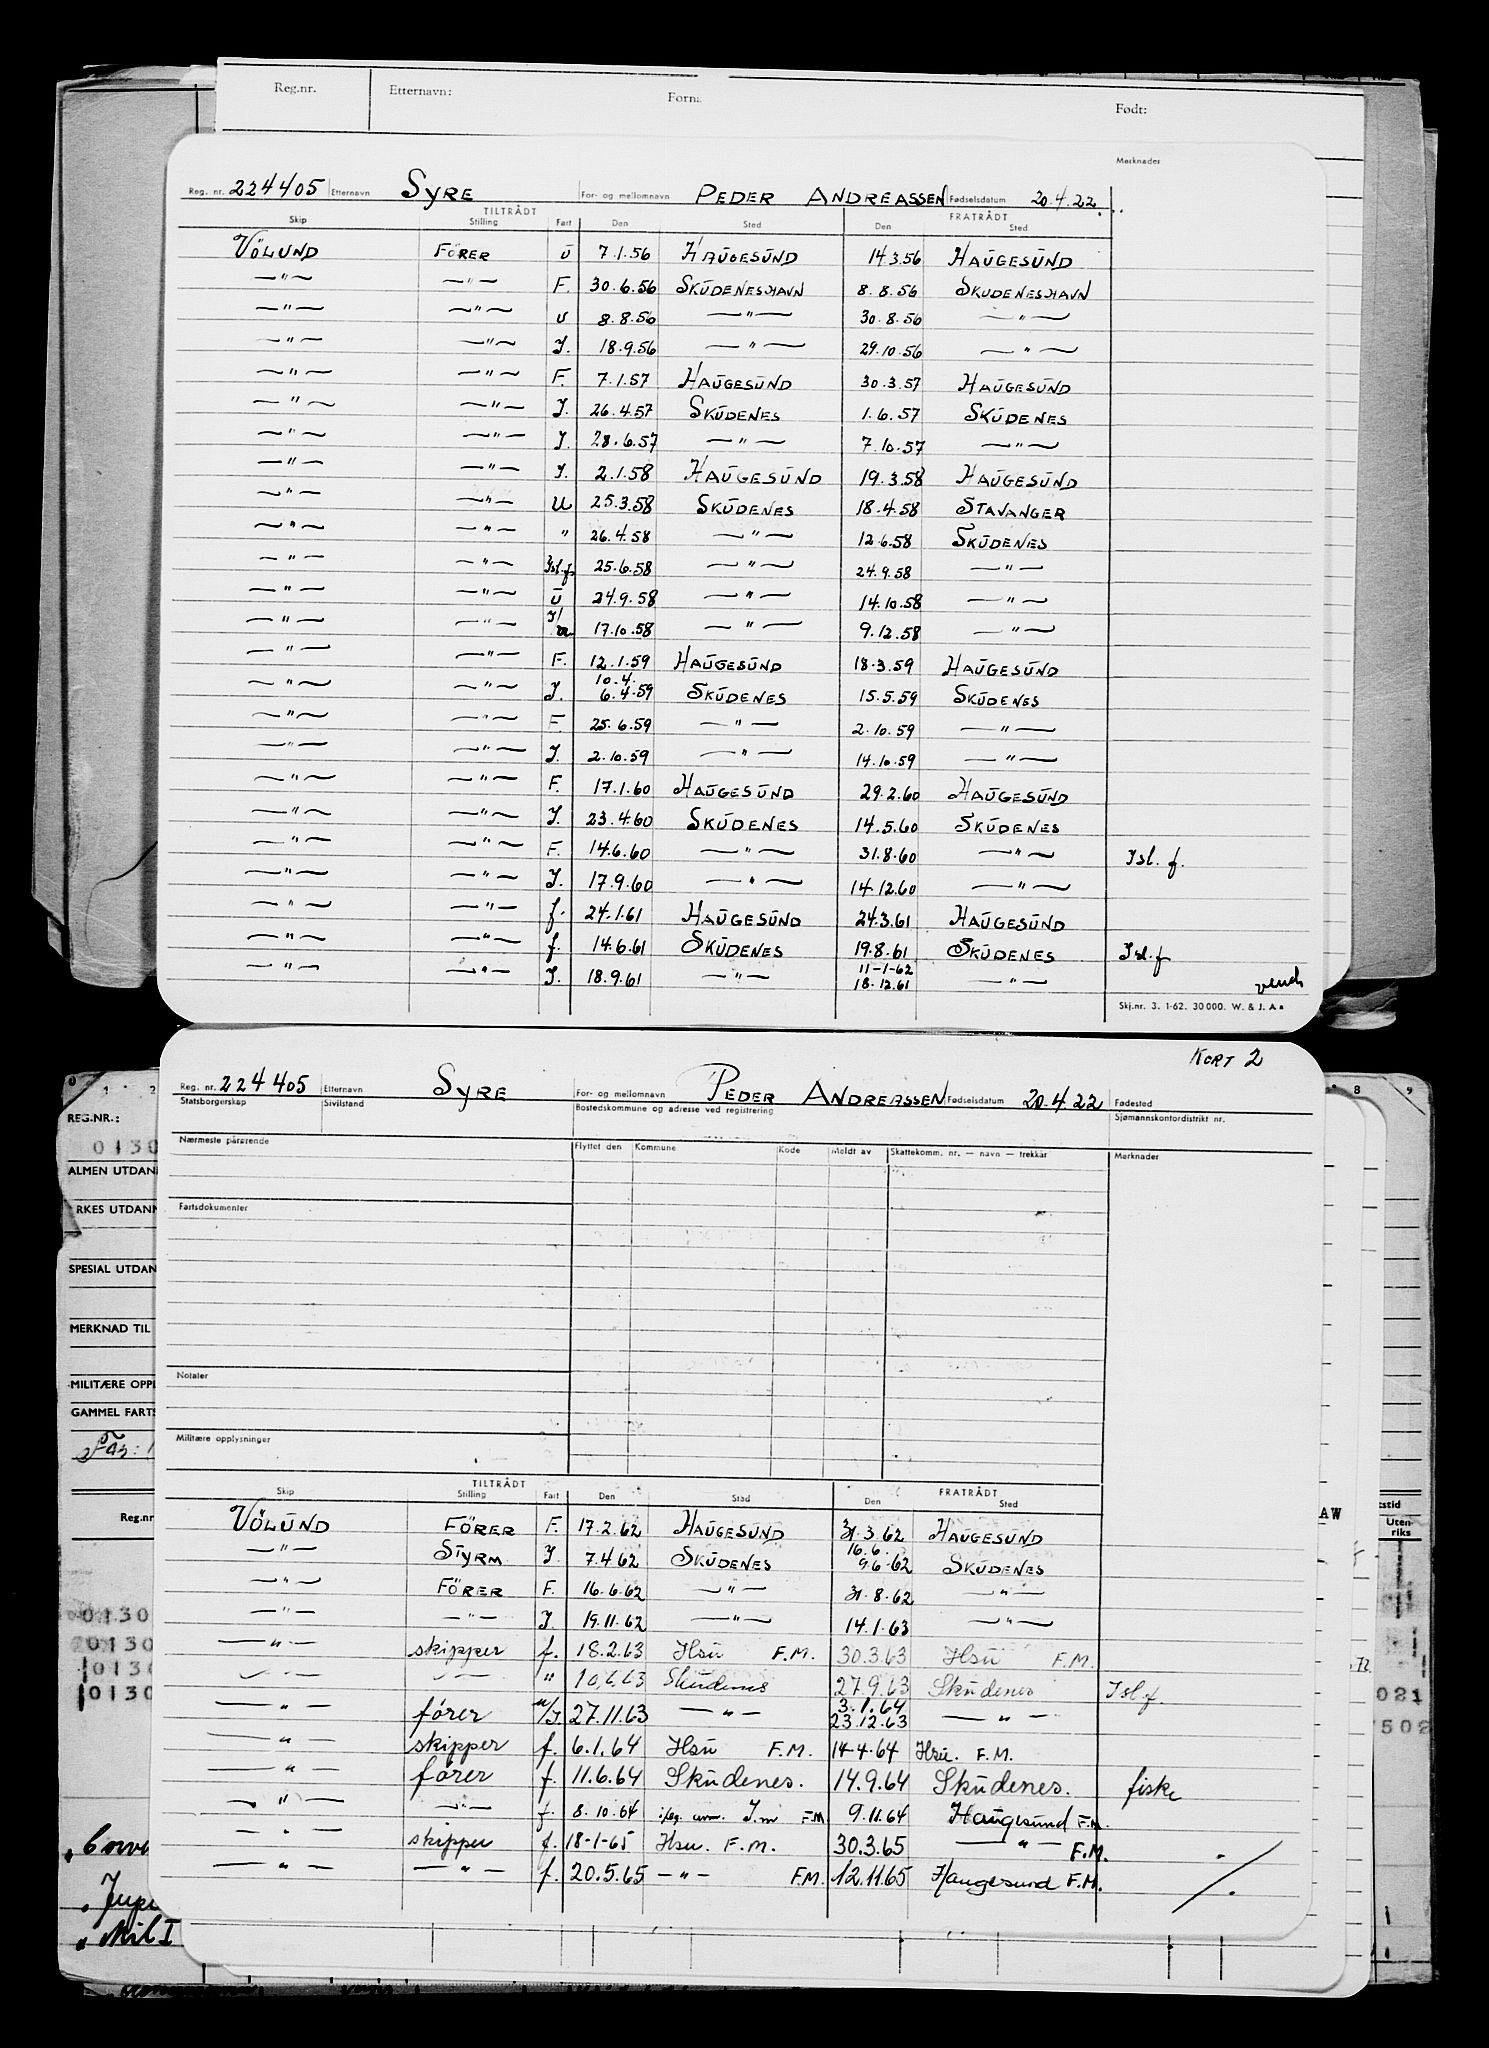 Reg.nr. Etternavn: Forn. Født:
Merknader
Reg. nr. 224405 Etternavn SYRE For- og mellomnavn PEDER ANDREASSEN Fødselsdatum 20.4.22.
TILTRÅDT FRATRÅDT
Skip Stilling Fart Den Sted Den Sted
VÖLUND FÖRER U 7.1.56 HAUGESUND 14.3.56 HAUGESUND
—"— —"— F. 30.6.56 SKUDENESHAVN 8.8.56 SKUDENESHAVN
—"— —"— U 8.8.56 —"— 30.8.56 —"—
—"— —"— I. 18.9.56 —"— 29.10.56 —"—
—"— —"— F. 7.1.57 HAUGESUND 30.3.57 HAUGESUND
—"— —"— I. 26.4.57 SKUDENES 1.6.57 SKUDENES
—"— —"— I. 28.6.57 —"— 7.10.57 —"—
—"— —"— I. 2.1.58 HAUGESUND 19.3.58 HAUGESUND
—"— —"— U 25.3.58 SKUDENES 18.4.58 STAVANGER
—"— —"— " 26.4.58 —"— 12.6.58 SKUDENES
—"— —"— Isl.f. 25.6.58 —"— 24.9.58 —"—
—"— —"— U 24.9.58 —"— 14.10.58 —"—
—"— —"— I/u 17.10.58 —"— 9.12.58 —"—
—"— —"— F. 12.1.59 HAUGESUND 18.3.59 HAUGESUND
—"— —"— I. 10.4. 6.4.59 SKUDENES 15.5.59 SKUDENES
—"— —"— F. 25.6.59 —"— 2.10.59 —"—
—"— —"— I. 2.10.59 —"— 14.10.59 —"—
—"— —"— F. 17.1.60 HAUGESUND 29.2.60 HAUGESUND
—"— —"— I. 23.4.60 SKUDENES 14.5.60 SKUDENES
—"— —"— F. 14.6.60 —"— 31.8.60 —"— Isl. f.
—"— —"— I. 17.9.60 —"— 14.12.60 —"—
—"— —"— f. 24.1.61 HAUGESUND 24.3.61 HAUGESUND
—"— —"— f. 14.6.61 SKUDENES 19.8.61 SKUDENES Isl.f
—"— —"— I. 18.9.61 —"— 11-1-62 18.12.61 —"— vend
Skj.nr. 3. 1-62. 30 000. W. & J. A s
KORT 2
Reg. nr. 224405 Etternavn SYRE For- og mellomnavn PEDER ANDREASSEN Fødselsdatum 20.4.22 Fødested
Statsborgerskap Sivilstand Bostedskommune og adresse ved registrering Sjømannskontordistrikt nr.
Nærmeste pårørende Flyttet den Kommune Kode Meldt av Skattekomm. nr. — navn — trekkår Merknader
Fartsdokumenter
Notater
Militære opplysninger
TILTRÅDT FRATRÅDT
Skip Stilling Fart Den Sted Den Sted
VÖLUND FÖRER F. 17.2.62 HAUGESUND 31.3.62 HAUGESUND
—"— STYRM I. 7.4.62 SKUDENES 16.6. 9.6.62 SKUDENES
—"— FÖRER F. 16.6.62 —"— 31.8.62 —"—
—"— —"— I. 19.11.62 —"— 14.1.63 —"—
—"— skipper f. 18.2.63 Hsu F.M. 30.3.63 Hsu F.M.
—"— —"— " 10.6.63 Skudenes 27.9.63 Skudenes Isl.f.
—"— förer u/I. 27.11.63 —"— 3.1.64 23.12.63 —"—
—"— skipper f. 6.1.64 Hsu F.M. 14-4.64 Hsu. F.M.
—"— förer f. 11.6.64 Skudenes. 14.9.64 Skudenes. fiske
—"— —"— f. 8.10.64 F.M. 9.11.64 Haugesund F.M.
—"— skipper f. 18-1-65 Hsu. F.M. 30.3.65 —"— F.M.
—"— —"— f. 20.5.65 —"— F.M. 12.11.65 Haugesund F.M. ./.
0 1 2 8 9
REG.NR.:
0130
ALMEN UTDAN
RKES UTDANN
SPESIAL UTDAN
MERKNAD TIL
MILITÆRE OPPL
GAMMEL FARTS
Far:
Reg.nr
0130
0130
0130
0130
AW
tstid
Uten-
riks
72
021
502